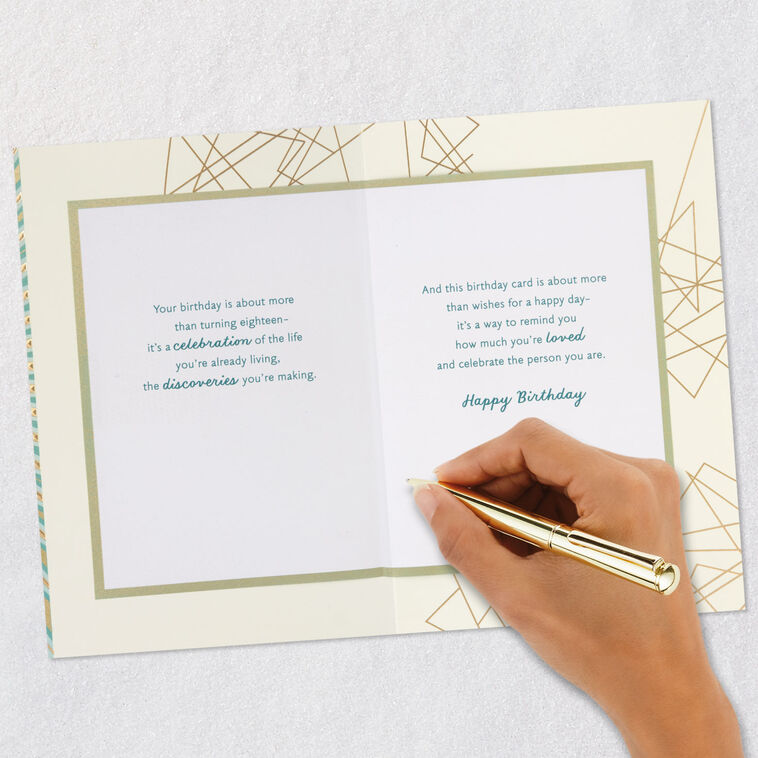 Your birthday is about more
than turning eighteen–
it's a celebration of the life
you're already living,
the discoveries you're making.
And this birthday card is about more
than wishes for a happy day–
it's a way to remind you
how much you're loved
and celebrate the person you are.
Happy Birthday